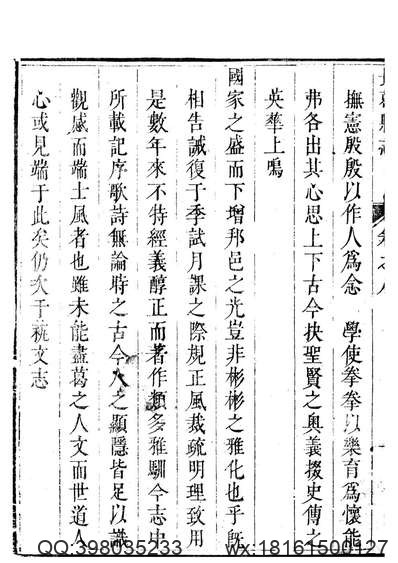 撫憲殷殷以作人為念　學使拳拳以樂育為懷能
弗各出其心思上下古今抉聖賢之奥義掇史傳之
英華上鳴
國家之盛而下增邦邑之光豈非彬彬之雅化也乎旣
相告誡復于季試月課之際規正風裁疏明理致用
是數年來不特經義醇正而著作類多雅馴今志中
所載記序歌詩無論時之古今人之顯隱皆足以識
觀感而端士風者也雖未能盡葛之人文而世道人
心或見端于此矣仍次于藝文志
卷之八
QQ:398035233 wx:18161500127